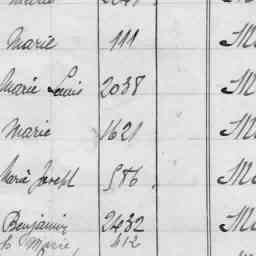 Marie 111 M
Marie Louis 2038 M
Marie 1621 M
Marie Joseph 586 M
Benjamin 2432 M
Marie, 412